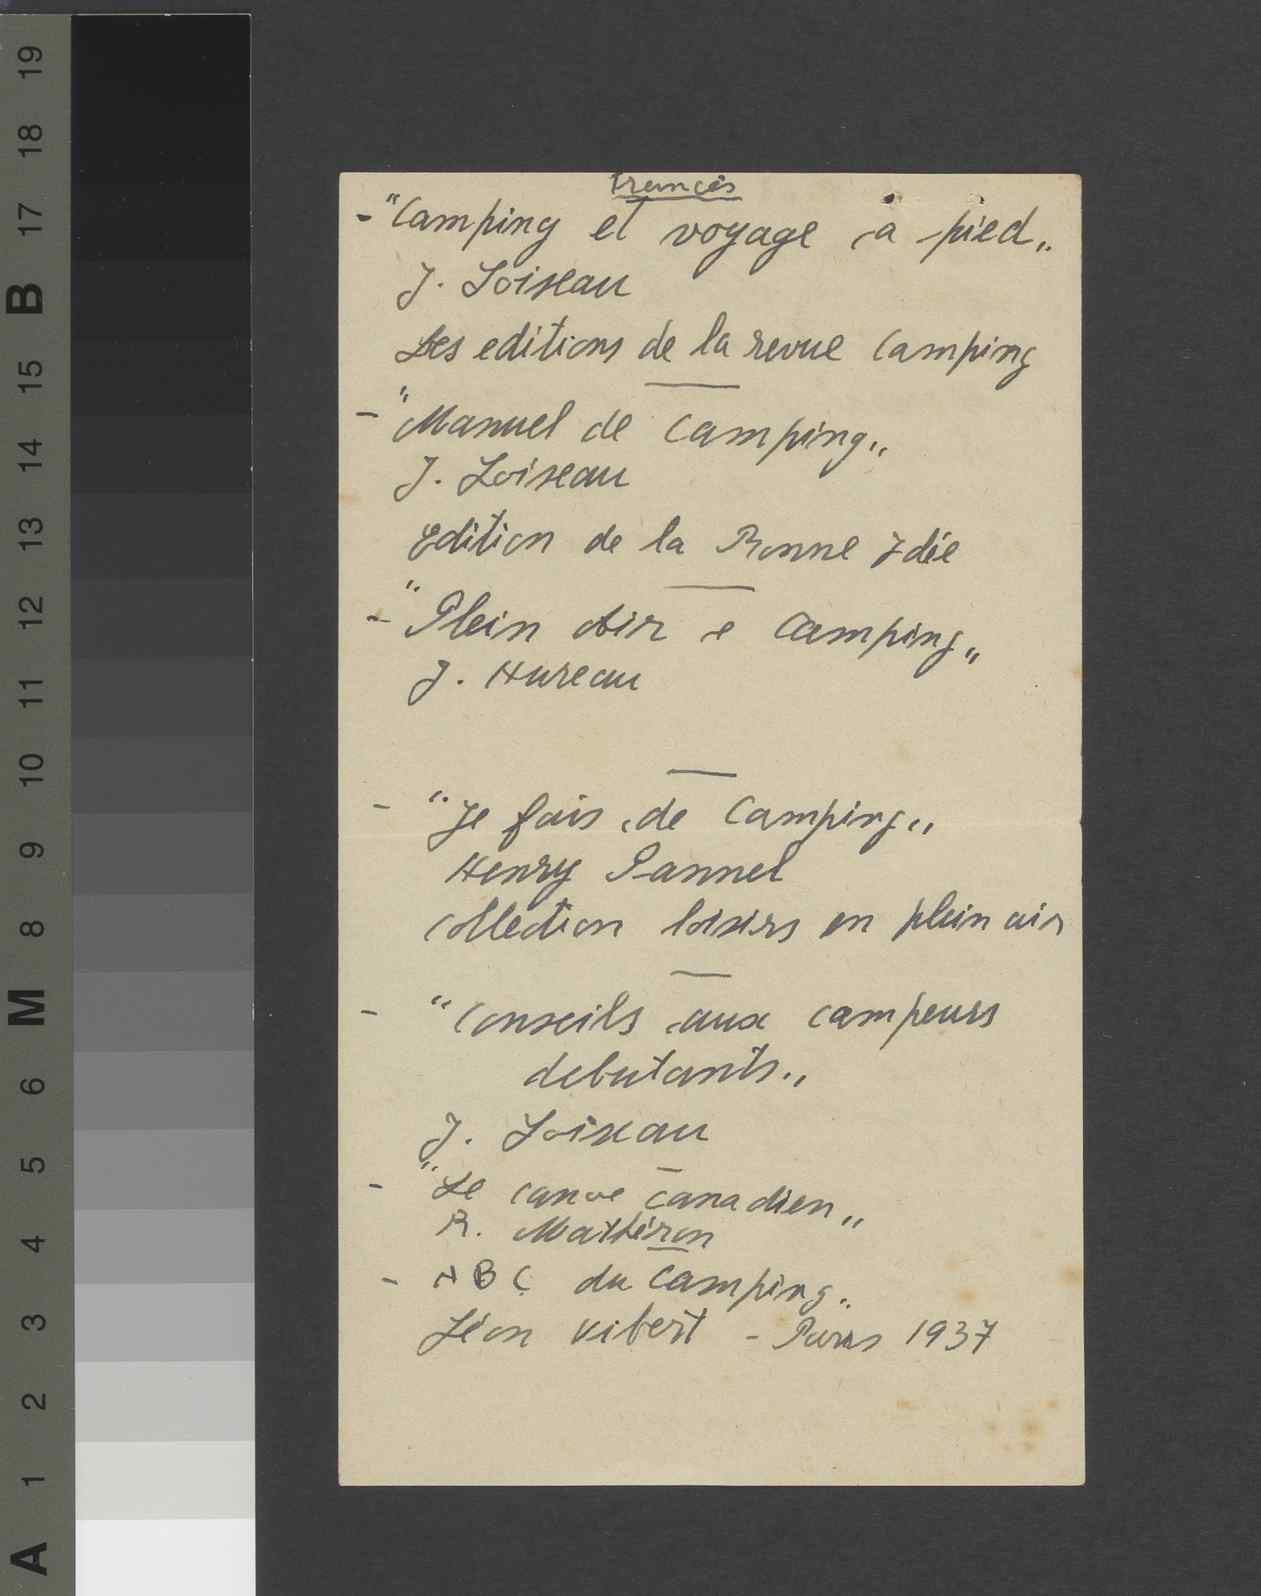 Francés
- "Camping et voyage a pied„
J. Loiseau
Les editions de la revue Camping
- "Manuel de Camping„
J. Loiseau
Edition de la Bonne Idée
- "Plein Air e Camping„
J. Hureau
- "Je fais de Camping„
Henry Pannel
Collection loisirs en plein air
- "Conseils aux campeurs
debutants„
J. Loiseau
- "Le canoe canadien„
R.
- A B C du Camping„
Léon Vibert - Paris 1937
19
18
17
B
15
14
13
12
11
10
9
8
M
6
5
4
3
2
1
A